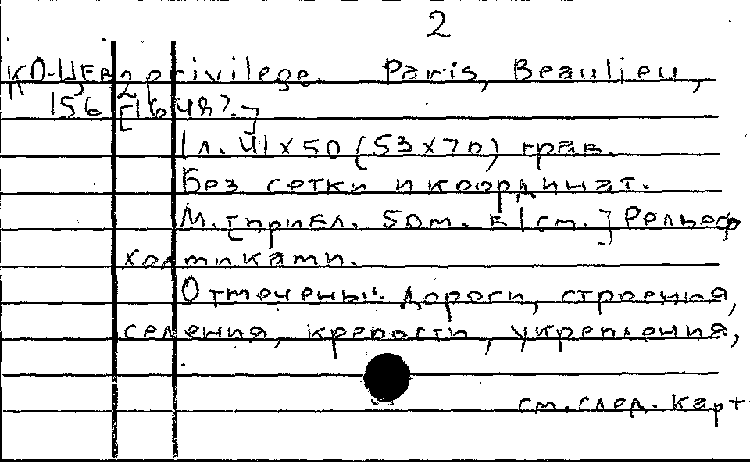 2
privilege. Paris, Beaulieu,
156 [1648?.]
1 л. 41х50 (53х70) грав.
Без сетки и координат.
М. [прибл. 50m. в 1 cm.] Рельеф
холмиками.
Отмечены: дороги, строения,
селения, крепости, укрепления,
см. след. карт